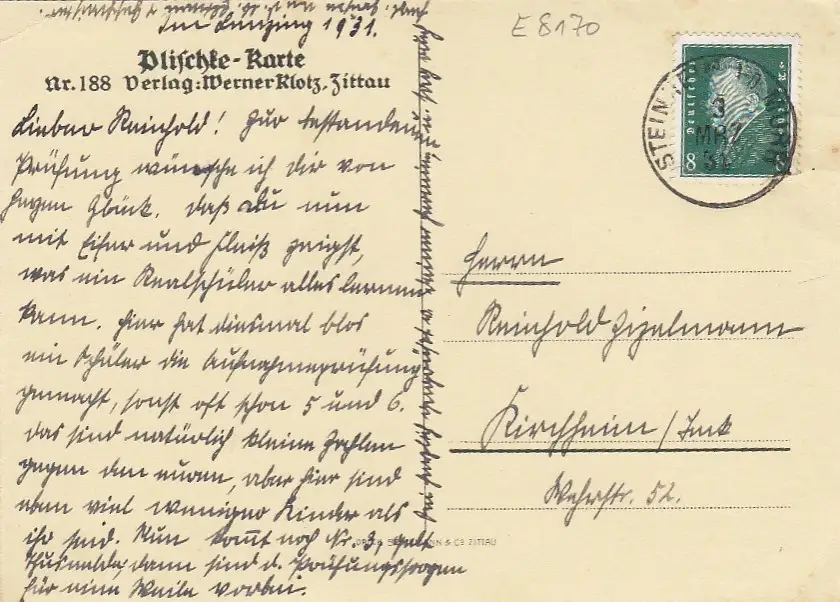 Im Lenzing 1931.
Plischke-Karte
Nr. 188 Verlag: Werner Klotz, Zittau
Lieber Reinhold! Zur bestandenen
Prüfung wünsche ich dir von
Herzen Glück. Daß du nun
mit Eifer und Fleiß zeigst,
was ein Realschüler alles lernen
kann. Hier hat diesmal blos
ein Schüler die Aufnahmeprüfung
gemacht, sonst oft schon 5 und 6.
Das sind natürlich kleine Zahlen
gegen den euren, aber hier sind
eben viel weniger Kinder als
ihr seid. Nun kommt noch Nr. 3, gelt
Thusnelda, dann sind d. Prüfungssorgen
für eine Weile vorbei.
E 8170
Deutsches
8
STEIN
3
MRZ
31
Herrn
Reinhold Zizelmann
Kirchheim / Teck
Wehrstr. 52.
& Co ZITTAU